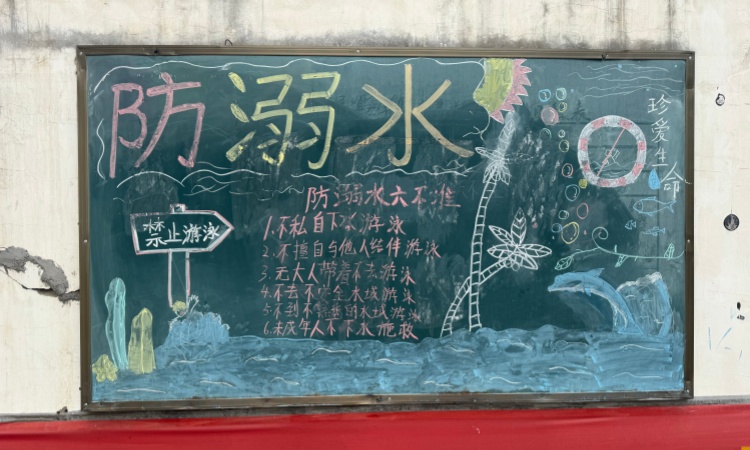 防溺水
珍爱生命
防溺水六不准
禁止游泳
1.不私自下水游泳
2.不擅自与他人结伴游泳
3.无大人带着不去游泳
4.不去不安全水域游泳
5.不到不熟悉的水域游泳
6.未成年人不下水施救